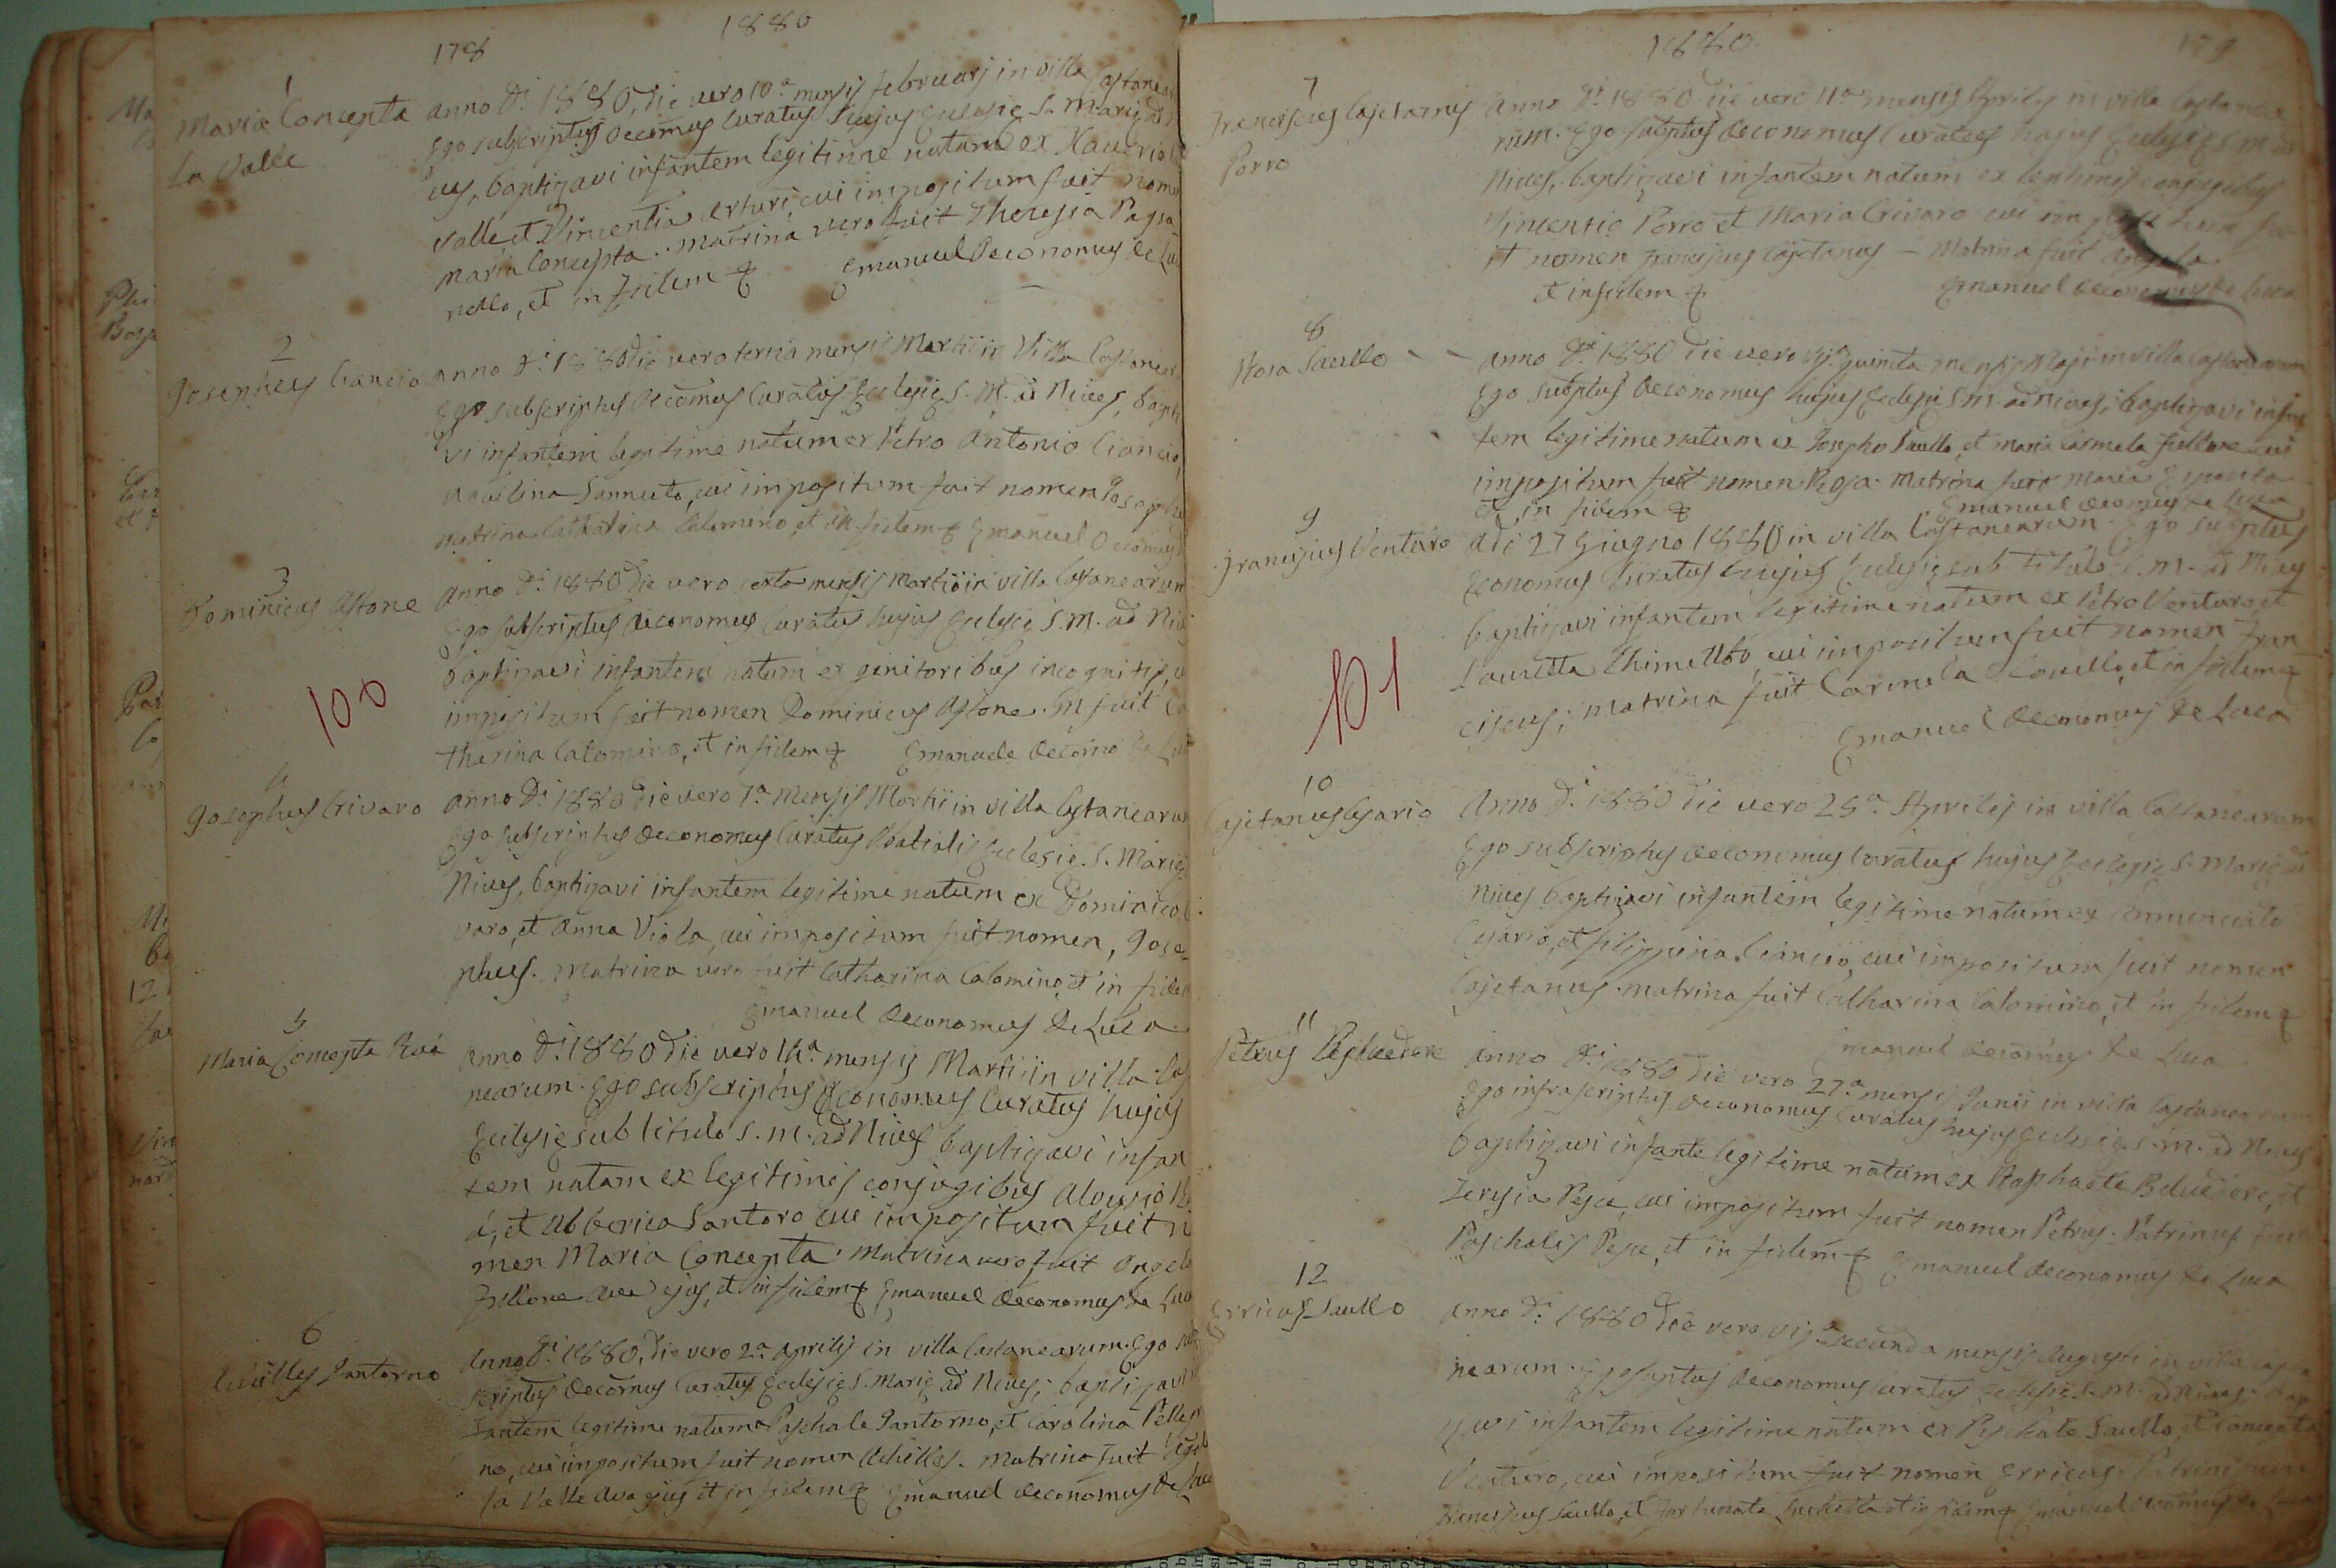 178
1880
1
Maria Concepta
La Valle
Anno D.i 1880, die vero 10a mensis februarj in villa Castanear
Ego subscriptus Oecōmus Curatus hujus Eclesię S. Marię ad
ves, baptizavi infantem legitime natam ex Xaverio
Valle, et Vincentia Arturi, cui impositum fuit nome
Maria Concepta. Matrina vero fuit Theresia Paga
nello, et in fidem Emanuel Oeconomus de Luca
2
Josephus Ciancio
Anno D.i 1880 die vero tertia mensis Martii in Villa Castanear
Ego subscriptus Oecōmus Curatus Eclesię S. M. ad Nives, bapti
vi infantem legitime natum ex Petro Antonio Ciancio,
Sannuto, cui impositum fuit nomen Josephu
matrina Catharina Calomino, et in fidem Emanuel Oecomus
3
Dominicus Astone
Anno D.i 1880 die vero sexta mensis Martii in villa Castanearum
Ego subscriptus Oeconomus Curatus hujus Eclesię S. M. ad Nives
baptizavi infantem natum ex genitoribus incognitis, c
100
impositum fuit nomen Dominicus Astone. M fuit Ca
tharina Calomino, et in fidem Emanuele Oecōmo de Luca
4
Josephus Crivaro
Anno D.i 1880 die vero 7a Mensis Martii in villa Castanearum
Ego subscriptus Oeconomus Curatus Eclesię S. Marię
Nives, baptizavi infantem legitime natum ex Dominico
varo, et Anna Viola, cui impositum fuit nomen, Jose
phus. Matrina vero fuit Catharina Calomino, et in fidem
Emanuel Oeconomus de Luca
5
Maria Concepta Ruá
Anno D.i 1880 die vero 14a mensis Martii in villa Cas
nearum. Ego subscriptus Oeconomus Curatus hujus
Eclesię sub titulo S. M. ad Nives baptizavi infan
tem natam ex legitimis conjugibus Aloysio Ru
á, et Alberica Santoro cui impositum fuit no
men Maria Concepta. Matrina vero fuit Angela
Fullone et in fidem Emanuel Oeconomus de Luca
6
Achilles Santorno
Anno D.i 1880, die vero 2a Aprilis in villa Castanearum. Ego sub
scriptus Oecōmus Curatus Eclesię S. Marię ad Nives, baptizavi in
fantem legitime natum Paschale Santorno, et Carolina Pelleri
no, cui impositum fuit nomen Achilles. Matrina fuit
la Valle et in fidem Emanuel Oeconomus de Luca
1880
179
7
Franciscus Cajetanus
Porro
Anno D.i 1880 die vero 11a mensis Aprilis in villa Castanea
rum. Ego suptus Oeconomus Curatus hujus Eclesię S. M. ad
Nives, baptizavi infantem natum ex legitimis conjugibus
Vincentio Porro et Maria Crivaro cui impositum fu
it nomen Franciscus Cajetanus - Matrina fuit Angela
et in fidem Emanuel Oeconomus de Luca
8
Rosa Saullo
Anno D.i 1880 die vero vig. quinta mensis Maji in villa Castanearum
Ego subptus Oeconomus hujus Eclesię S M. ad Nives, baptizavi infan
tem legitime natam ex Josepho Saullo, et Maria Carmela Fullone cui
impositum fuit nomen Rosa. Matrina fuit Maria Esposito
et in fidem Emanuel Oecomus de Luca
9
Franciscus Venturo
Adi 27 Giugno 1880 in villa Castanearum. Ego subptus
Economus Curatus hujus Eclesię sub titulo S. M. ad Nives
baptizavi infantem legitime natum ex Petro Venturo et
101
Lauretta Chimello, cui impositum fuit nomen Fran
ciscus; matrina fuit Carmela Covello, et in fidem
Emanuel Oeconomus de Luca
10
Cajetanus Cesario
Anno D.i 1880 die vero 25a Aprilis in villa Castanearum
Ego subscriptus Oeconomus Curatus hujus Eclesię S. Marię ad
Nives baptizavi infantem legitime natum ex Annunciato
Cesario, et Filippina Ciancio, cui impositum fuit nomen
Cajetanus. matrina fuit Catharina Calomino, et in fidem
Emanuel Oecomus de Luca
11
Petrus Belvedere
Anno D.i 1880 die vero 27a mensis Junii in villa Castanearum
Ego infrascriptus Oeconomus Curatus hujus Eclesię S. M. ad Nives
baptizavi infante legitime natum ex Raphaele Belvedere, et
Teresia Pesce, cui impositum fuit nomen Petrus. Patrinus fuit
Paschalis Pesce, et in fidem Emanuel Oeconomus de Luca
12
Erricus Saullo
Anno D.i 1880 die vero vig.a secunda mensis Augusti in villa Casta
nearum. Ego suptus Oeconomus Curatus Eclesię S. M. ad Nives, bap
zavi infantem legitime natum ex Paschale Saullo, et Concepta
Venturo, cui impositum fuit nomen Erricus. Patrini
Franciscus Saullo, et Fortunata et in fidem Emanuel Oecomus de Luca